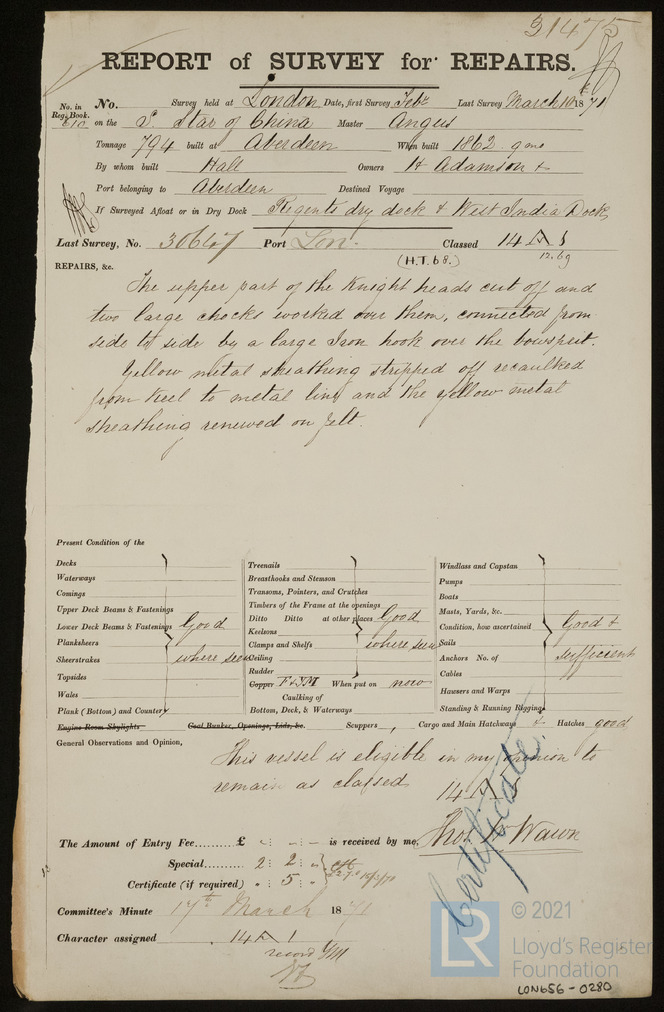 31475
REPORT of SURVEY for REPAIRS.
No. in Reg. Book. 610
No. Survey held at London Date, first Survey Feby Last Survey March 10 1871
on the S. Star of China Master Angus
Tonnage 794 built at Aberdeen When built 1862
By whom built Hall Owners H Adamson &
Port belonging to Aberdeen Destined Voyage
If Surveyed Afloat or in Dry Dock Regents dry dock & West India Docks
Last Survey, No. 30647 Port Lon. Classed 14 A 1
(H.T. 68.) 12.69
REPAIRS, &c.
The upper part of the Knight heads cut off and
two large chocks worked over them, connected from
side to side by a large Iron hook over the bowsprit.
Yellow metal sheathing stripped off recaulked
from keel to metal line and the yellow metal
sheathing renewed on felt.
Present Condition of the
Decks
Waterways
Comings
Upper Deck Beams & Fastenings
Lower Deck Beams & Fastenings Good
Planksheers
Sheerstrakes where seen
Topsides
Wales
Plank (Bottom) and Counter
Treenails
Breasthooks and Stemson
Transoms, Pointers, and Crutches
Timbers of the Frame at the openings
Ditto Ditto at other places Good
Keelsons
Clamps and Shelfs where seen
Ceiling
Rudder
Copper F & YM When put on now
Caulking of
Bottom, Deck, & Waterways
Windlass and Capstan
Pumps
Boats
Masts, Yards, &c.
Condition, how ascertained Good &
Sails
Anchors No. of sufficient
Cables
Hawsers and Warps
Standing & Running Rigging
Engine Room Skylights Coal Bunker, Openings, Lids, &c. Scuppers, Cargo and Main Hatchways & Hatches good
General Observations and Opinion,
This vessel is eligible in my opinion to
remain as classed 14 A 1
Certificate
The Amount of Entry Fee......... £ is received by me,
Thos W Wawn
Special......... 2 : 2 :
Certificate (if required) : 5 :
Committee's Minute 17th March 1871
Character assigned 14 A 1
record YM
© 2021
LR
Lloyd's Register
Foundation
LON656-0280